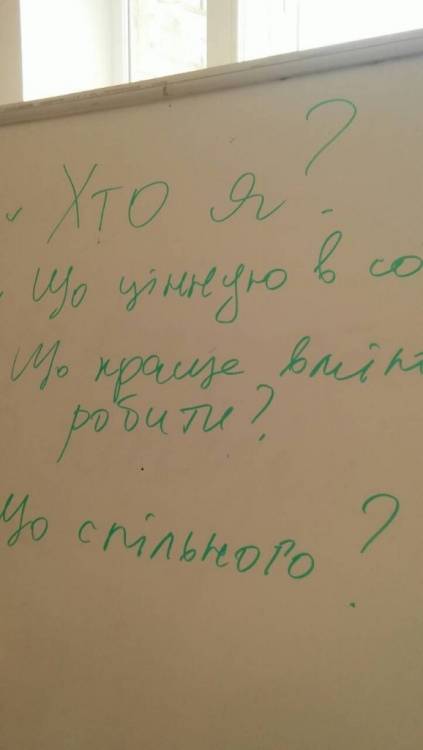 Хто я?
Що ціную в со
Що краще вміт
робити?
Що спільного?